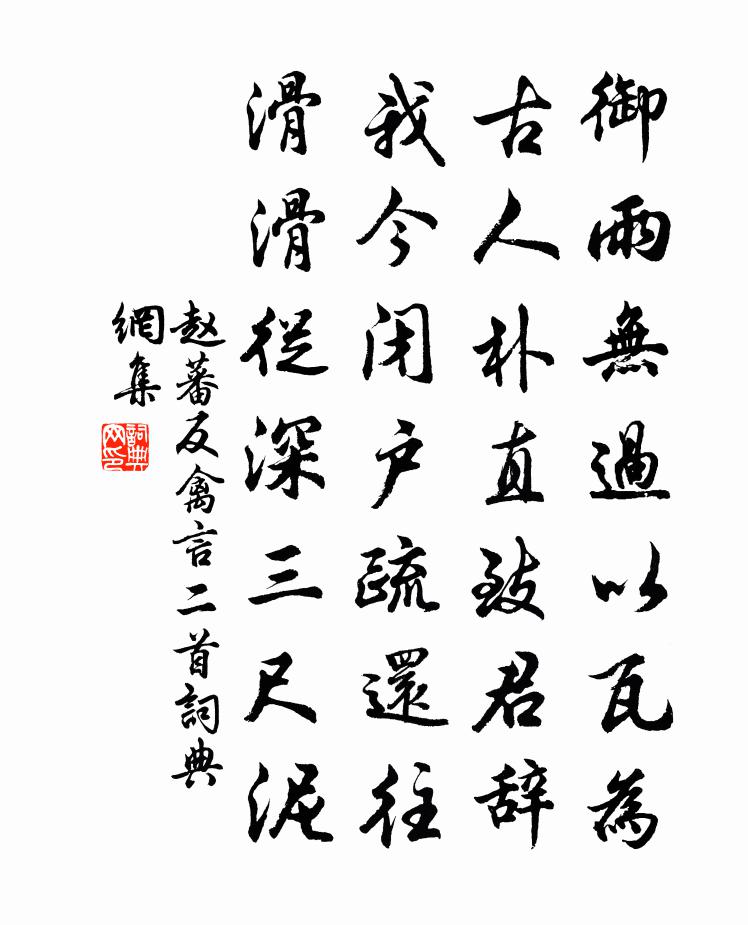 御雨無過以瓦為
古人朴直致君辞
我今闭户疏還往
滑滑從深三尺泥
赵蕃反禽言二首詞典
網集
詞典
网印